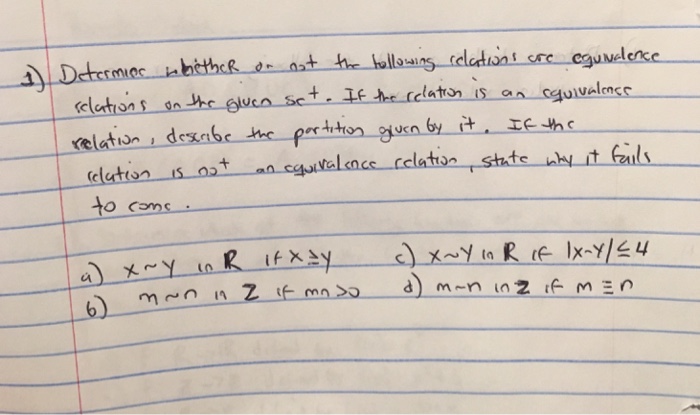 1) Determine whetheR or not the following relations are equivalence
relations on the given set. If the relation is an equivalence
relation, describe the partition given by it. If the
relation is not an equivalence relation, state why it fails
to come.
a) x~y in R if x≥y
c) x~y in R if |x-y|≤4
b) m~n in Z if mn>0
d) m~n in Z if m≡n